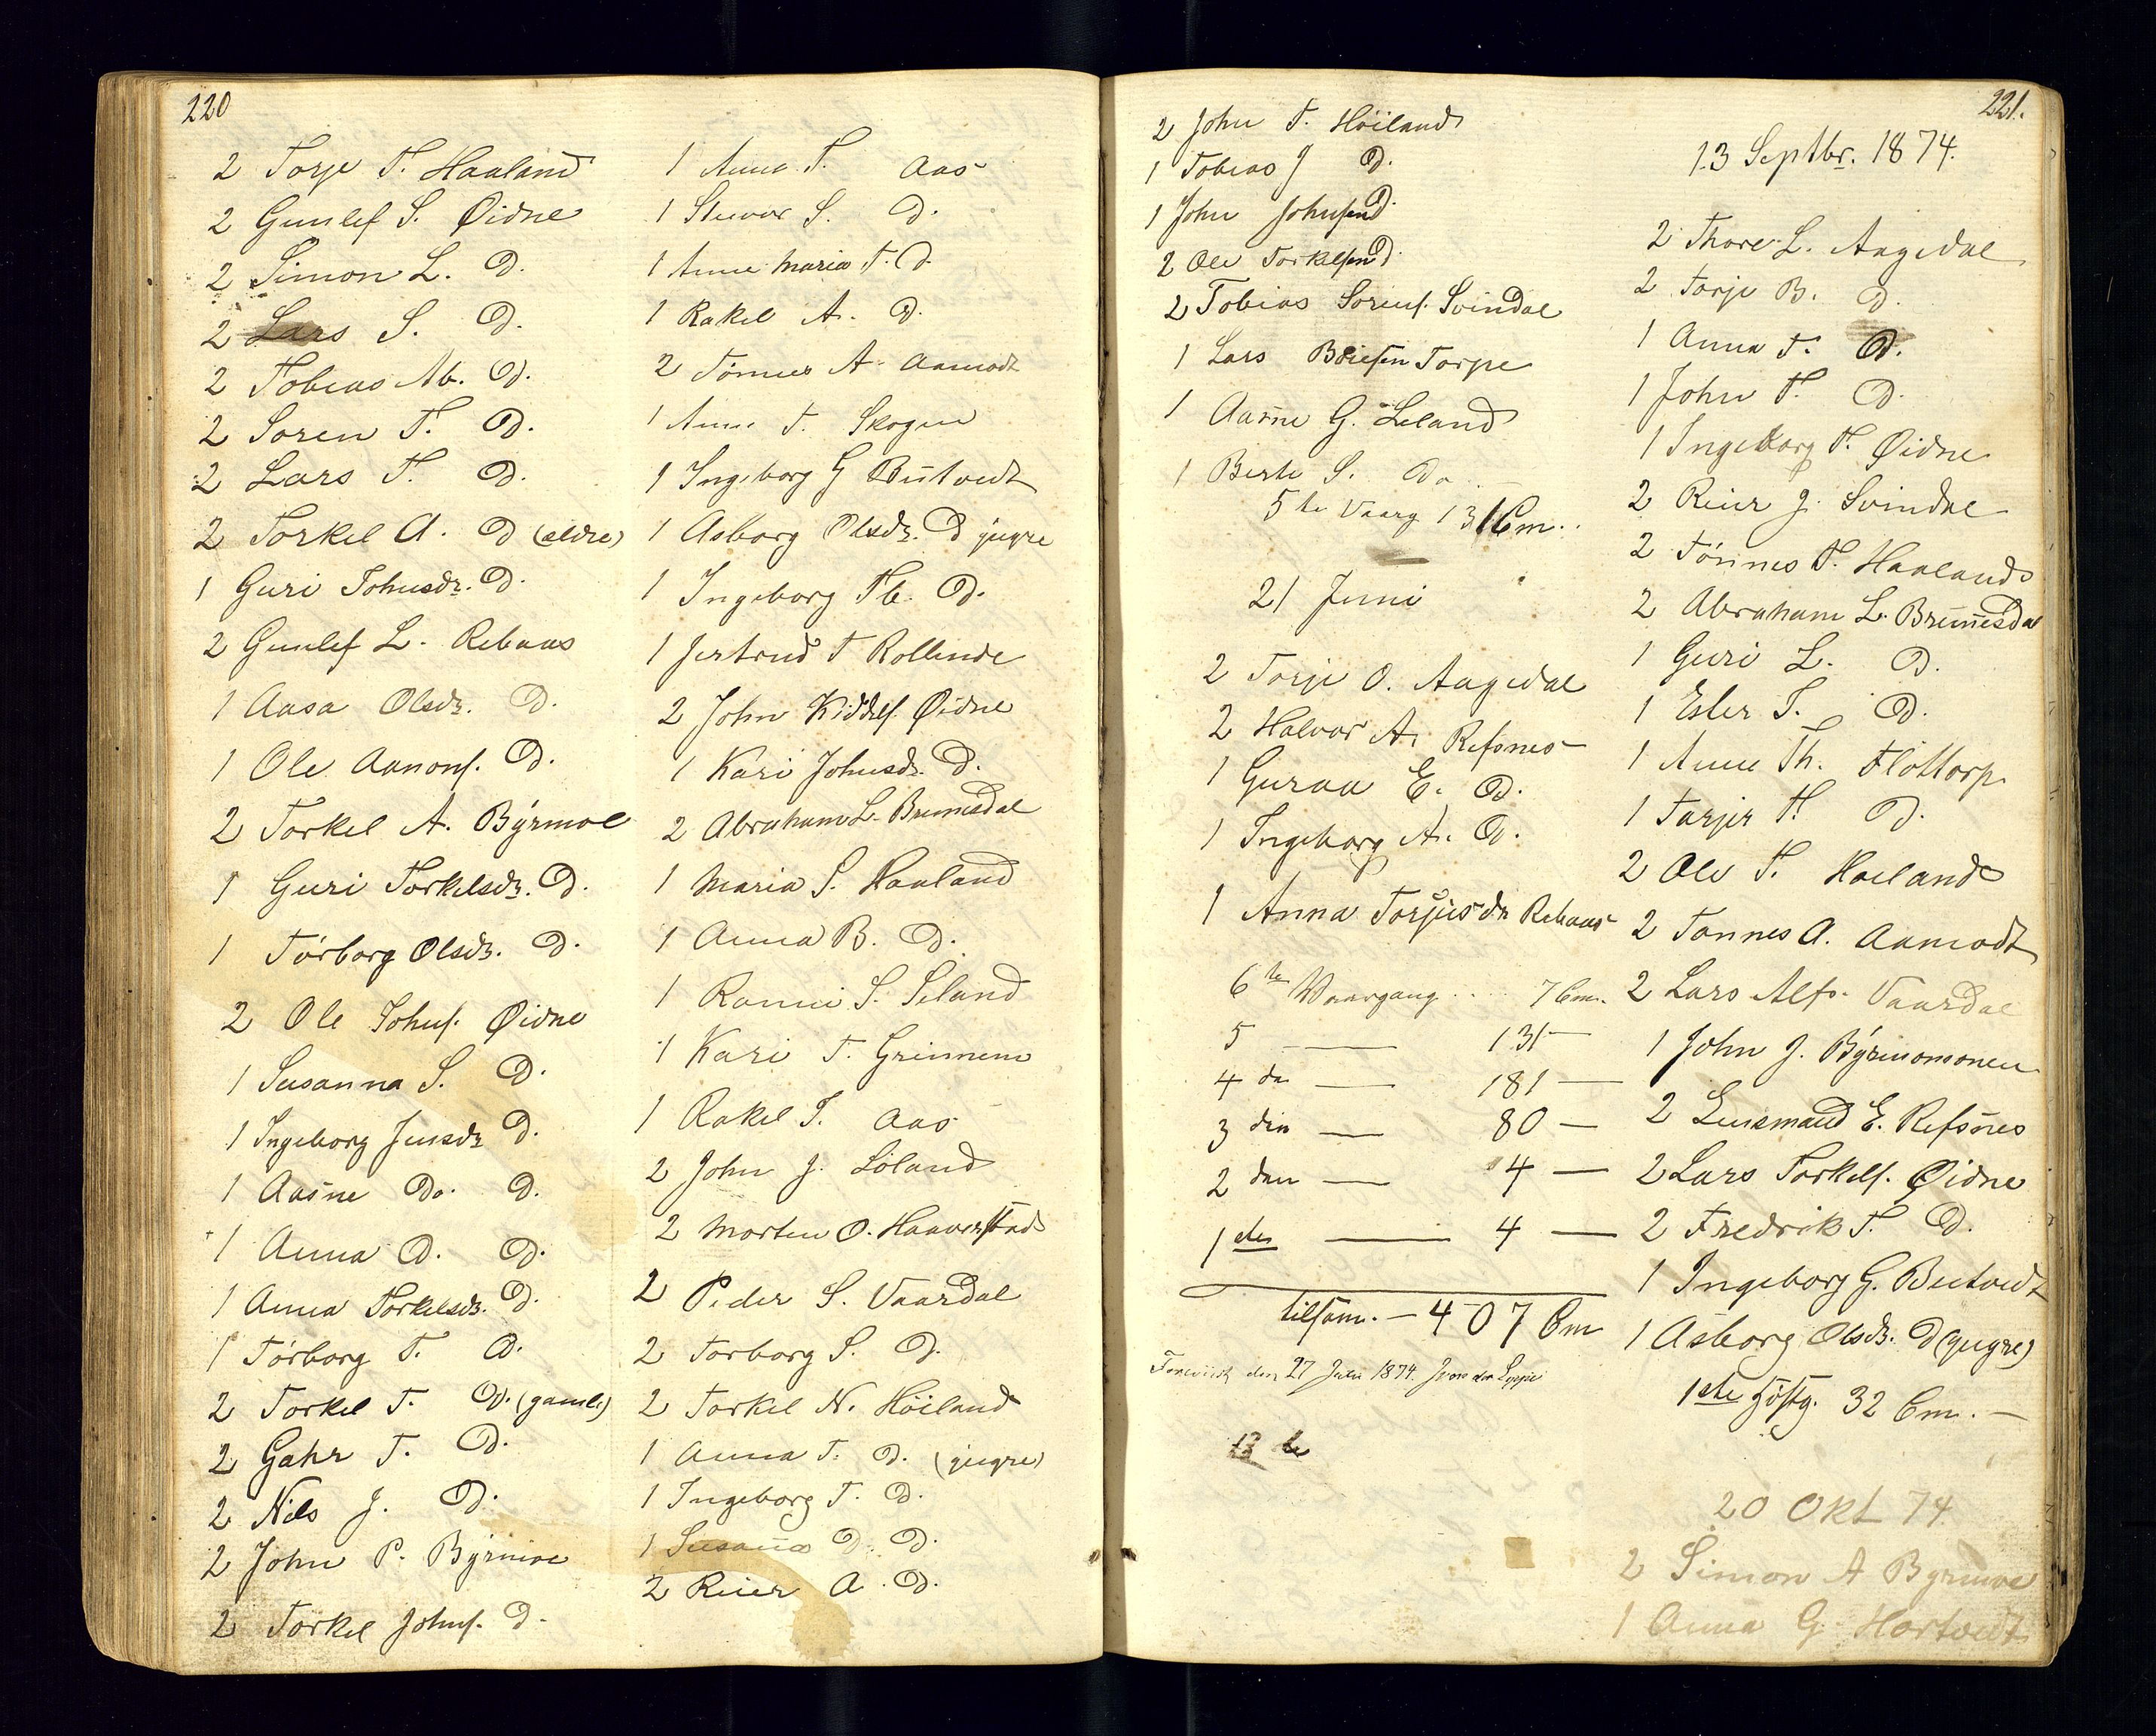 220
2 Torje T. Haaland
2 Gunlef S. Øidne
2 Simon L. D.
2 Lars S. D.
2 Tobias Ab. D.
2 Soren T. D.
2 Lars T. D.
2 Torkel A. D (eldre)
1 Guri Johnsdr. D.
2 Gunlef L. Rebaas
1 Aasa Olsdr. D.
1 Ole Aanons. D.
2 Torkel A. Byrmoe
1 Guri Torkelsdr. D.
1 Torborg Olsdr. D.
2 Ole Johns. Øidne
1 Susanna S. D.
1 Ingeborg Jensdr D.
1 Aasne Do. D.
1 Anna D. D.
1 Anna Torkelsdr. D.
1 Torborg T. D.
2 Torkel T. D. (gamle)
2 Gahr T. D.
2 Nils J. D.
2 John P. Byrmoe
2 Torkel Johns. D.
1 Anne T. Aas
1 S. D.
1 Anne Maria T. D.
1 Rakel A. D.
2 Tönnes A. Aamodt
1 Anne T. Skogen
1 Ingeborg G Butvedt
1 Asborg Olsdr. D yngre
1 Ingeborg Tb. D.
1 Jertrud T Rollende
2 John Kiddelf. Øidne
1 Kari Johnsdr. D.
2 Abraham L. Brunesdal
1 Maria S. Haaland
1 Anna B. D.
1 Ranni S. Seland
1 Kari T. Grinnem
1 Rakel T. Aas
2 John J. Löland
2 Morten O. Haaverstad
2 Peder S. Vaardal
2 Torborg S. D.
2 Torkel N. Höiland
1 Anna T. D. (yngre)
1 Ingeborg T. D.
1 Susana D. D.
2 Reier A. D.
221.
2 John T. Höiland
1 Tobias J D.
1 John Johnsen D.
2 Ole Torkelsen D.
2 Tobias Sorens. Svindal
1 Lars Torpe
1 Aasne G. Leland
1 Berte S. Do
5te Vaarg 131 Cm.
21 Juni
2 Torje O. Aagedal
2 Halvor A. Refsnes
1 Guraa E. D.
1 Ingeborg A. D.
1 Anna Torjusdr Rebaas
6te Vaargang 7 Cm.
5 — 131 —
4de — 181 —
3die — 80 —
2den — 4 —
1ste — 4 —
tilsam. — 407 Cm
den 27 Juli 1874.
13 Septbr. 1874.
2 Thore L. Aagedal
2 Torje B. D.
1 Anna T. D.
1 John T. D.
1 Ingeborg T. Øidne
2 Reier J. Svindal
2 Tönnes T. Haaland
2 Abraham L. Brunesdal
1 Guri L. D.
1 Ester T. D.
1 Anne Th. Flottorp
1 Tarjer T. D.
2 Ole T. Hoeland
2 Tonnes A. Aamodt
2 Lars Alfs. Vaardal
1 John J. Byrmomonen
2 Lensmand E. Refsnes
2 Lars Torkels. Øidne
2 Fredrik T. D.
1 Ingeborg G. Butvedt
1 Asborg Olsdr. D (yngre)
1ste Höstg. 32 Cm. —
20 Okt 74
2 Simon A Byrmoe
1 Anna G Hortvedt